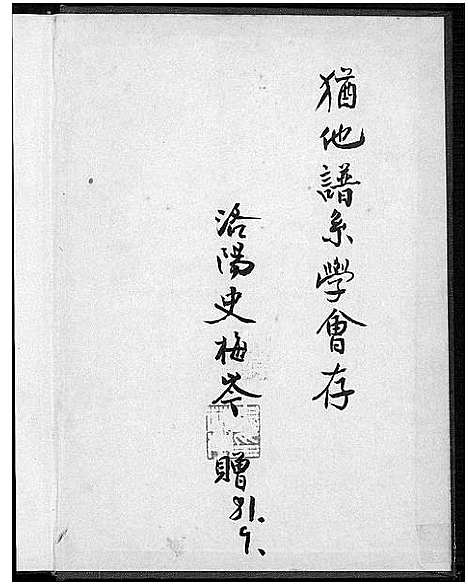 猶他譜系學會存
洛陽史梅岑 贈 81.9、